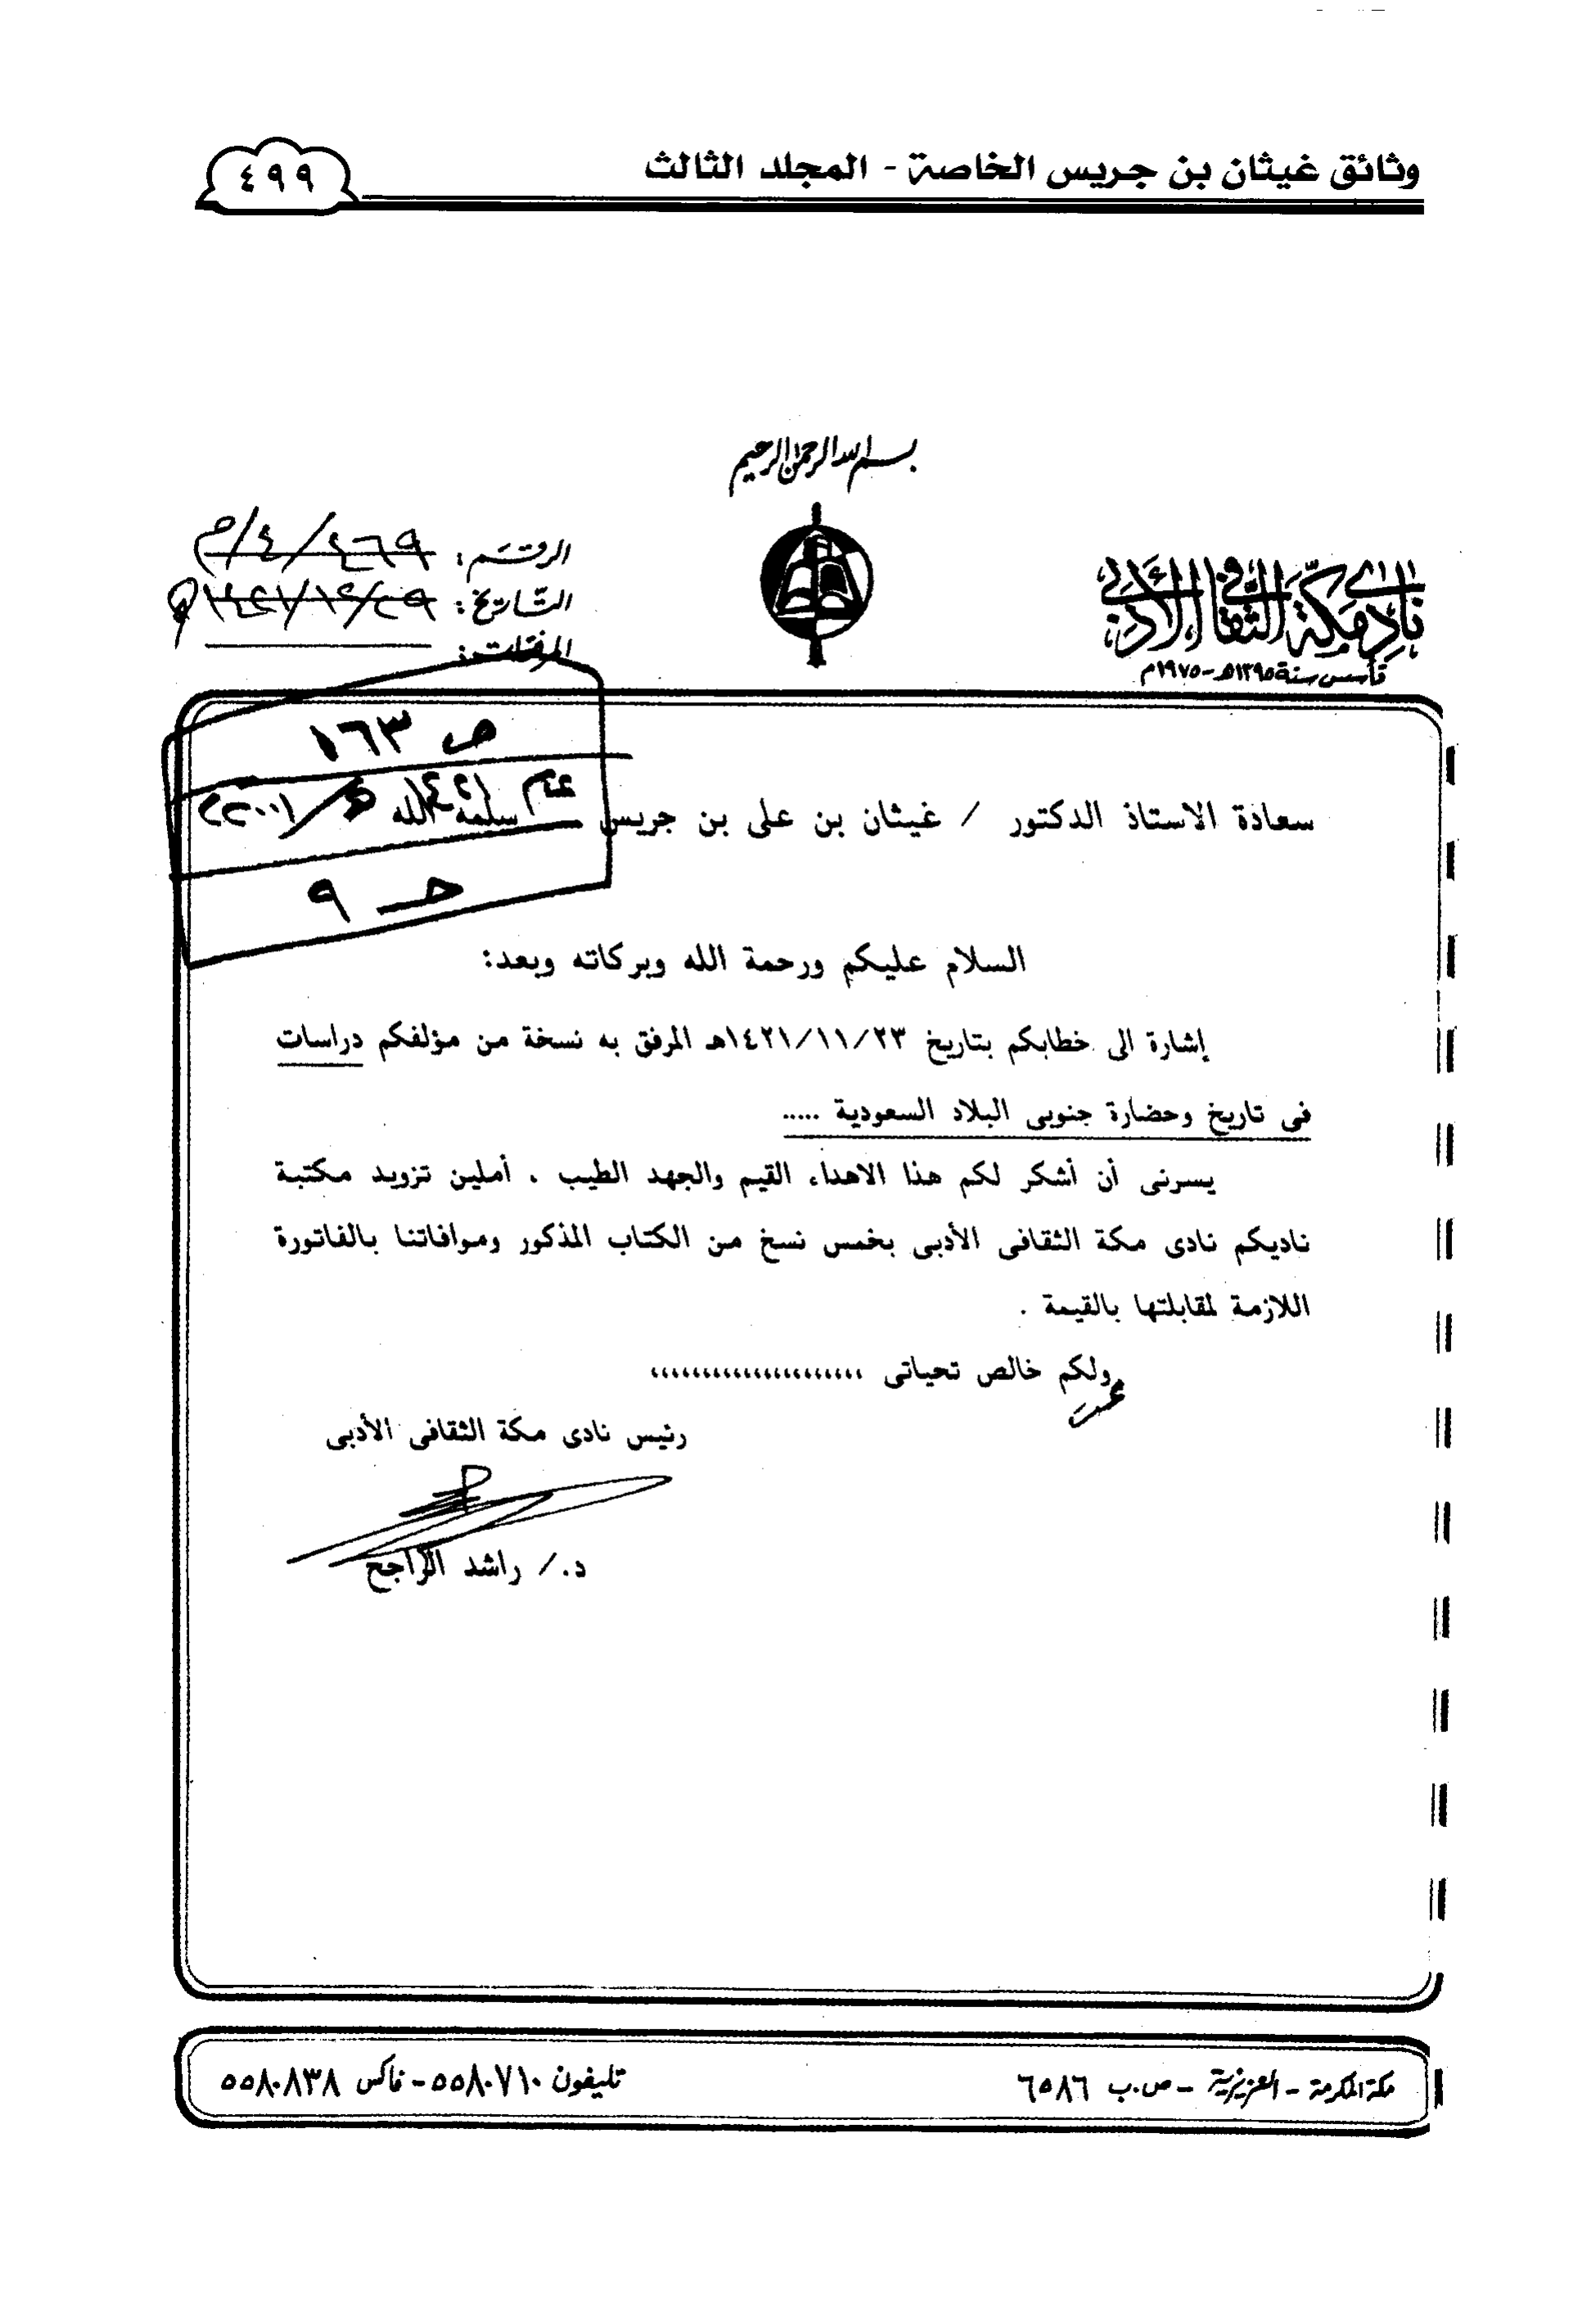 وثائق غيثان بن جريس الخاصة - المجلد الثالث
٤٩٩
بسم الله الرحمن الرحيم
نادي مكة الثقافي الأدبي
تأسس سنة ١٣٩٥هـ - ١٩٧٥م
الرقم: ٤٦٩/٤/م
التاريخ: ١٤٢١/١٢/٢٩
المرفقات:
ص ١٦٣
عام ١٤٢١هـ/٢٠٠١م
حـ ٩
سعادة الاستاذ الدكتور / غيثان بن على بن جريس سلمه الله
السلام عليكم ورحمة الله وبركاته وبعد:
إشارة الى خطابكم بتاريخ ١٤٢١/١١/٢٣هـ المرفق به نسخة من مؤلفكم دراسات
فى تاريخ وحضارة جنوبى البلاد السعودية .....
يسرنى أن أشكر لكم هذا الاهداء القيم والجهد الطيب ، أملين تزويد مكتبة
ناديكم نادى مكة الثقافى الأدبى بخمس نسخ من الكتاب المذكور وموافاتنا بالفاتورة
اللازمة لمقابلتها بالقيمة .
ولكم خالص تحياتى ،،،،،،،،،،،،،،،،،،،،،
رئيس نادى مكة الثقافى الأدبى
د./ راشد الراجح
مكة المكرمة - العزيزية - ص.ب ٦٥٨٦
تليفون ٥٥٨٠٧١٠ - فاكس ٥٥٨٠٨٣٨